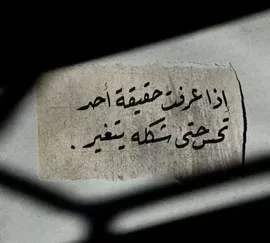 إذا عرفت حقيقة أحد
تحس حتى شكله يتغير .